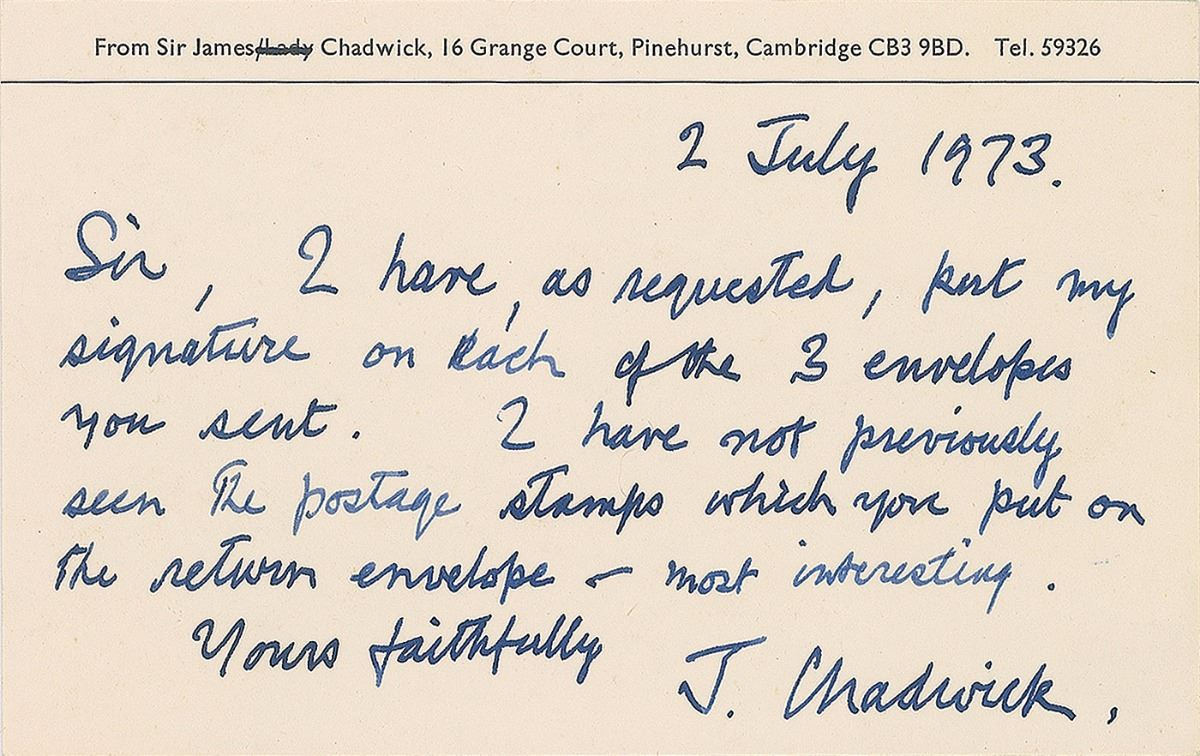 From Sir James/Lady Chadwick, 16 Grange Court, Pinehurst, Cambridge CB3 9BD. Tel. 59326
2 July 1973.
Sir, I have, as requested, put my
signature on each of the 3 envelopes
you sent. I have not previously
seen the postage stamps which you put on
the return envelope – most interesting.
Yours faithfully
J. Chadwick.